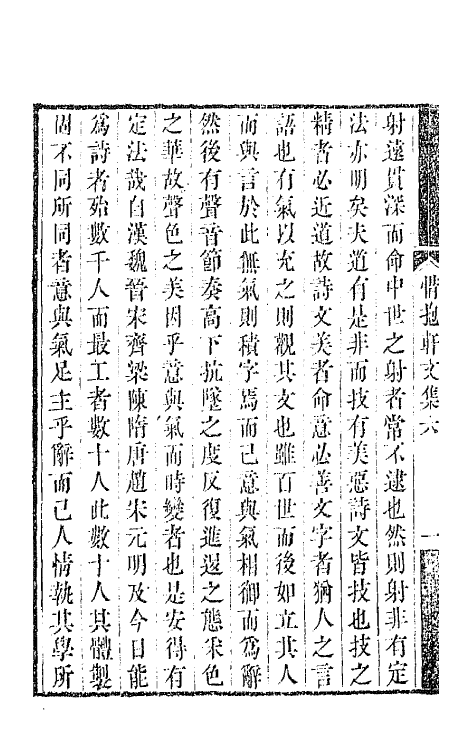 惜抱軒文集六
一
射遠貫深而命中世之射者常不逮也然則射非有定
法亦明矣夫道有是非而技有美惡詩文皆技也技之
精者必近道故詩文美者命意必善文字者猶人之言
語也有氣以充之則觀其文也雖百世而後如立其人
而與言於此無氣則積字焉而已意與氣相御而為辭
然後有聲音節奏高下抗墜之度反復進退之態釆色
之華故聲色之美因乎意與氣而時變者也是安得有
定法哉自漢魏晉宋齊梁陳隋唐趙宋元明及今日能
為詩者殆數千人而最工者數十人此數十人其體製
固不同所同者意與氣足主乎辭而已人情執其學所